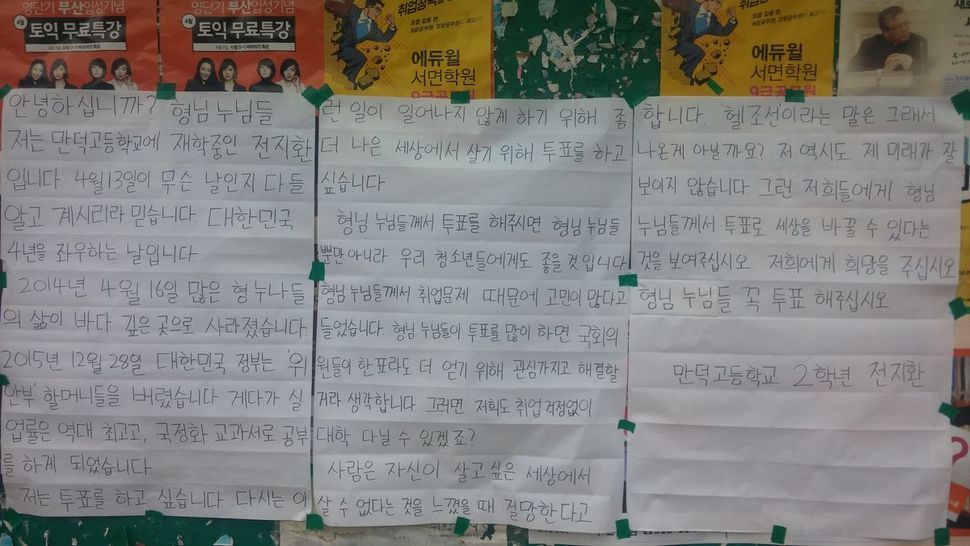 영단기 부산입성기념
4월
토익 무료특강
영단기 부산입성기념
4월
토익 무료특강
에듀윌
서면학원
9급공무원
에듀윌
서면학원
안녕하십니까? 형님 누님들
저는 만덕고등학교에 재학중인 전지환
입니다. 4월 13일이 무슨 날인지 다들
알고 계시리라 믿습니다. 대한민국
4년을 좌우하는 날입니다.
2014년 4월 16일 많은 형 누나들
의 삶이 바다 깊은 곳으로 사라졌습니다
2015년 12월 28일 대한민국 정부는 '위
안부' 할머니들을 버렸습니다 게다가 실
업률은 역대 최고고, 국정화 교과서로 공부
를 하게 되었습니다
저는 투표를 하고 싶습니다 다시는 이
런 일이 일어나지 않게 하기 위해 좀
더 나은 세상에서 살기 위해 투표를 하고
싶습니다
형님 누님들께서 투표를 해주시면 형님 누님들
뿐만 아니라 우리 청소년들에게도 좋을 것입니다
형님 누님들께서 취업문제 때문에 고민이 많다고
들었습니다 형님 누님들이 투표를 많이 하면 국회의
원들이 한표라도 더 얻기 위해 관심가지고 해결할
거라 생각합니다. 그러면 저희도 취업 걱정없이
대학 다닐 수 있겠죠?
사람은 자신이 살고 싶은 세상에서
살 수 없다는 것을 느꼈을 때 절망한다고
합니다. '헬조선'이라는 말은 그래서
나온게 아닐까요? 저 역시도 제 미래가 잘
보이지 않습니다 그런 저희들에게 형님
누님들께서 투표로 세상을 바꿀 수 있다는
것을 보여주십시오 저희에게 희망을 주십시오
형님 누님들 꼭 투표 해주십시오
만덕고등학교 2학년 전지환